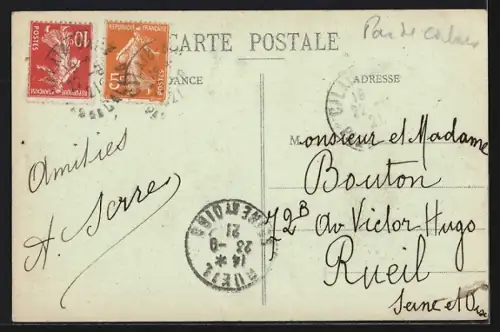 POSTES
10c
REPUBLIQUE FRANÇAISE
REPUBLIQUE FRANÇAISE
POSTES
CARTE POSTALE
Pas de Calais
DANCE
ADRESSE
Amitiés
A. Serres
Monsieur et Madame
Bouton
72B Av Victor Hugo
Rueil
Seine et Oise
RUEIL
14 *
23 - 8
21
SEINE ET OISE